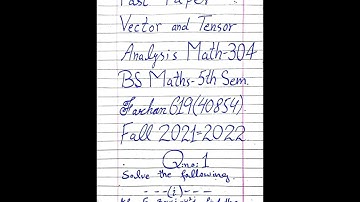 Past Paper :
Vector and Tensor
Analysis Math-304
BS Maths-5th Sem.
Farhan G19(40854)
Fall 2021=2022
Q no: 1
Solve the following.
---(i)---